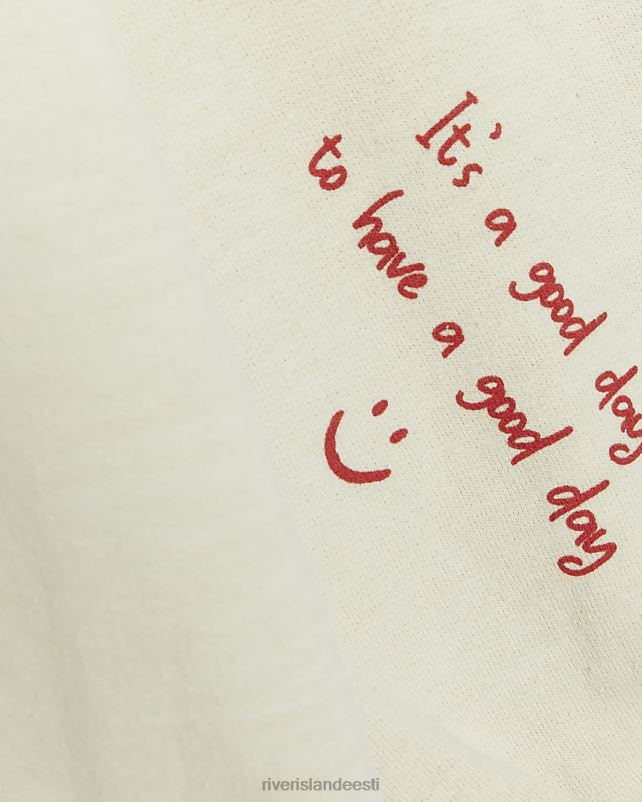 It's a good day
to have a good day
riverislandeesti